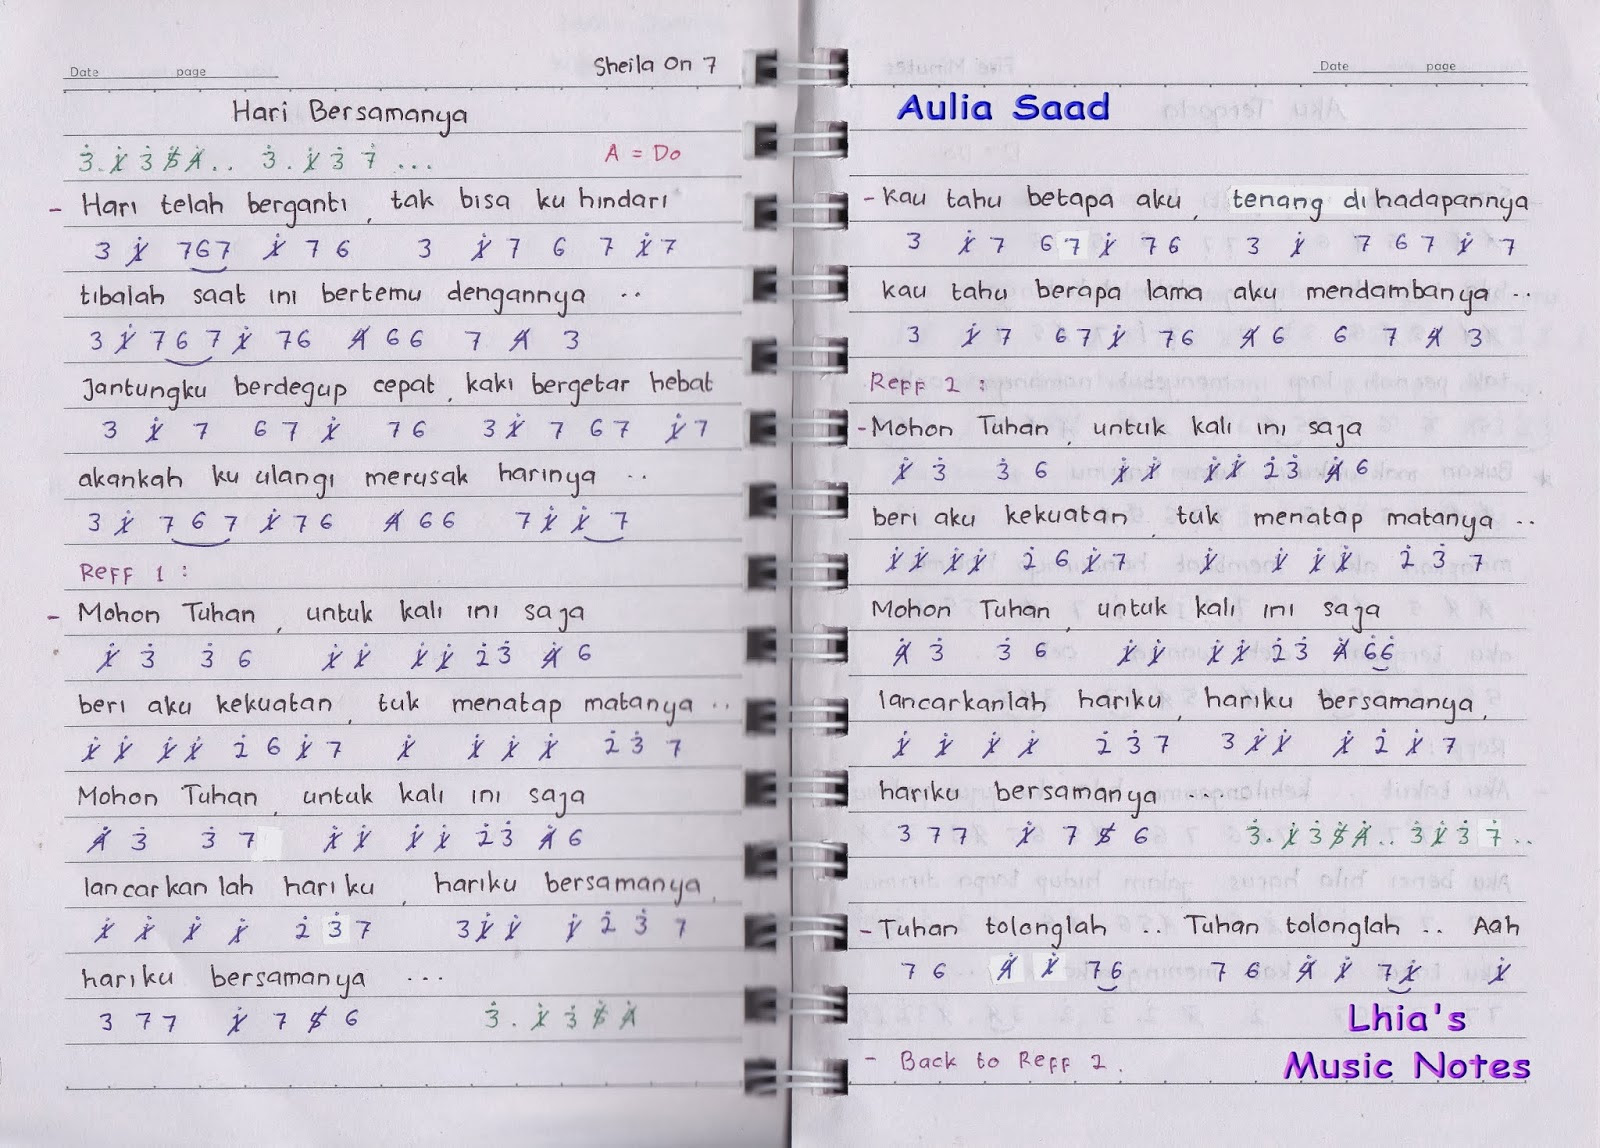 Date page
Sheila On 7
Hari Bersamanya
3 . 1 3 5 4 . . 3 . 1 3 7 ... A = Do
- Hari telah berganti, tak bisa ku hindari
3 1 767 1 7 6 3 1 7 6 7 1 7
tibalah saat ini bertemu dengannya ..
3 1 7 6 7 1 7 6 4 6 6 7 4 3
Jantungku berdegup cepat, kaki bergetar hebat
3 1 7 6 7 1 7 6 3 1 7 6 7 1 7
akankah ku ulangi merusak harinya ..
3 1 7 6 7 1 7 6 4 6 6 7 1 1 7
Reff 1 :
- Mohon Tuhan, untuk kali ini saja
1 3 3 6 1 1 1 1 2 3 4 6
beri aku kekuatan, tuk menatap matanya ..
1 1 1 1 2 6 1 7 1 1 1 1 2 3 7
Mohon Tuhan, untuk kali ini saja
4 3 3 7 1 1 1 1 2 3 4 6
lancarkan lah hari ku, hariku bersamanya,
1 1 1 1 2 3 7 3 1 1 1 2 3 7
hariku bersamanya ...
3 7 7 1 7 5 6 3 . 1 3 5 4
Date page
Aulia Saad
- Kau tahu betapa aku, tenang di hadapannya
3 1 7 6 7 1 7 6 3 1 7 6 7 1 7
kau tahu berapa lama aku mendambanya ..
3 1 7 6 7 1 7 6 4 6 6 7 4 3
Reff 2 :
- Mohon Tuhan, untuk kali ini saja
1 3 3 6 1 1 1 1 2 3 4 6
beri aku kekuatan, tuk menatap matanya ..
1 1 1 1 2 6 1 7 1 1 1 1 2 3 7
Mohon Tuhan, untuk kali ini saja
4 3 3 6 1 1 1 1 2 3 4 6 6
lancarkanlah hariku, hariku bersamanya,
1 1 1 1 2 3 7 3 1 1 1 2 1 7
hariku bersamanya ....
3 7 7 1 7 5 6 3 . 1 3 5 4 . . 3 1 3 7 . .
- Tuhan tolonglah .. Tuhan tolonglah .. Aah
7 6 4 1 7 6 7 6 4 1 7 1 1
Lhia's
- Back to Reff 2.
Music Notes